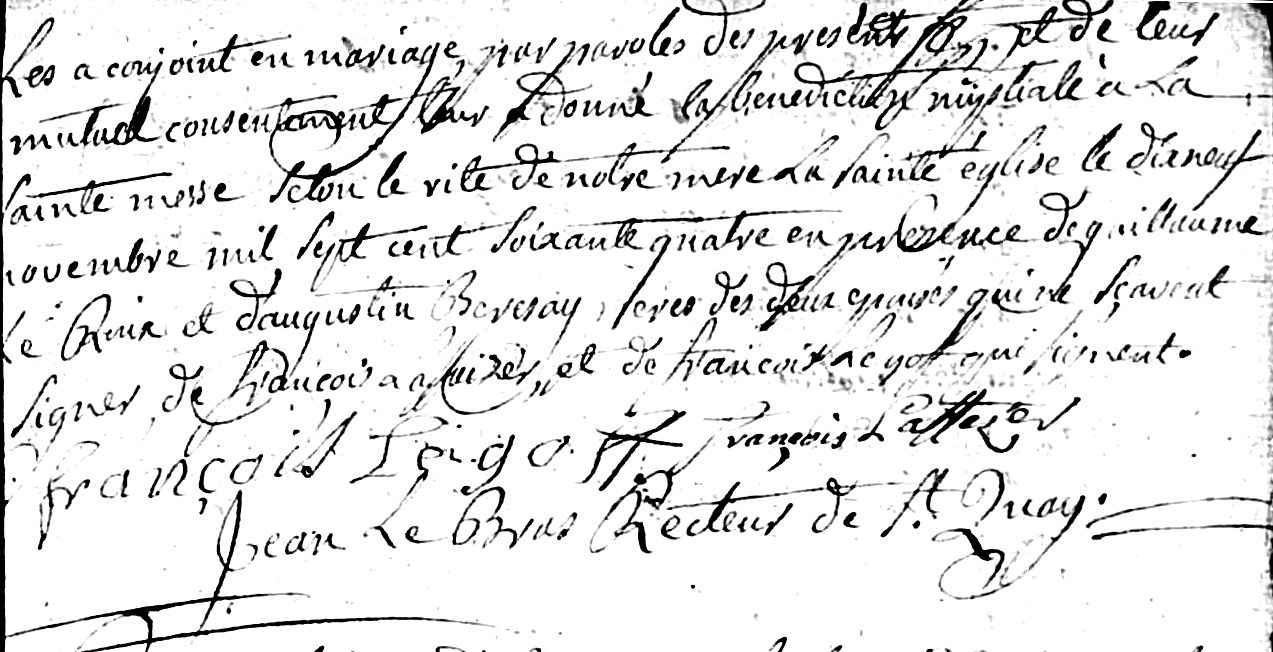 Les a conjoint en mariage, par paroles des presents et de leur
mutuel consentement leur a donné la benediction nuptiale à La
sainte messe selon le rite de notre mere La sainte église le dixneuf
novembre mil sept cent soixante quatre en presence de guillaume
Le Roux et d'augustin peres des deux epousés qui ne sçavent
signer, de françois et de françois qui signent.
françois françois
Jean Le Bras Recteur de St Quay.